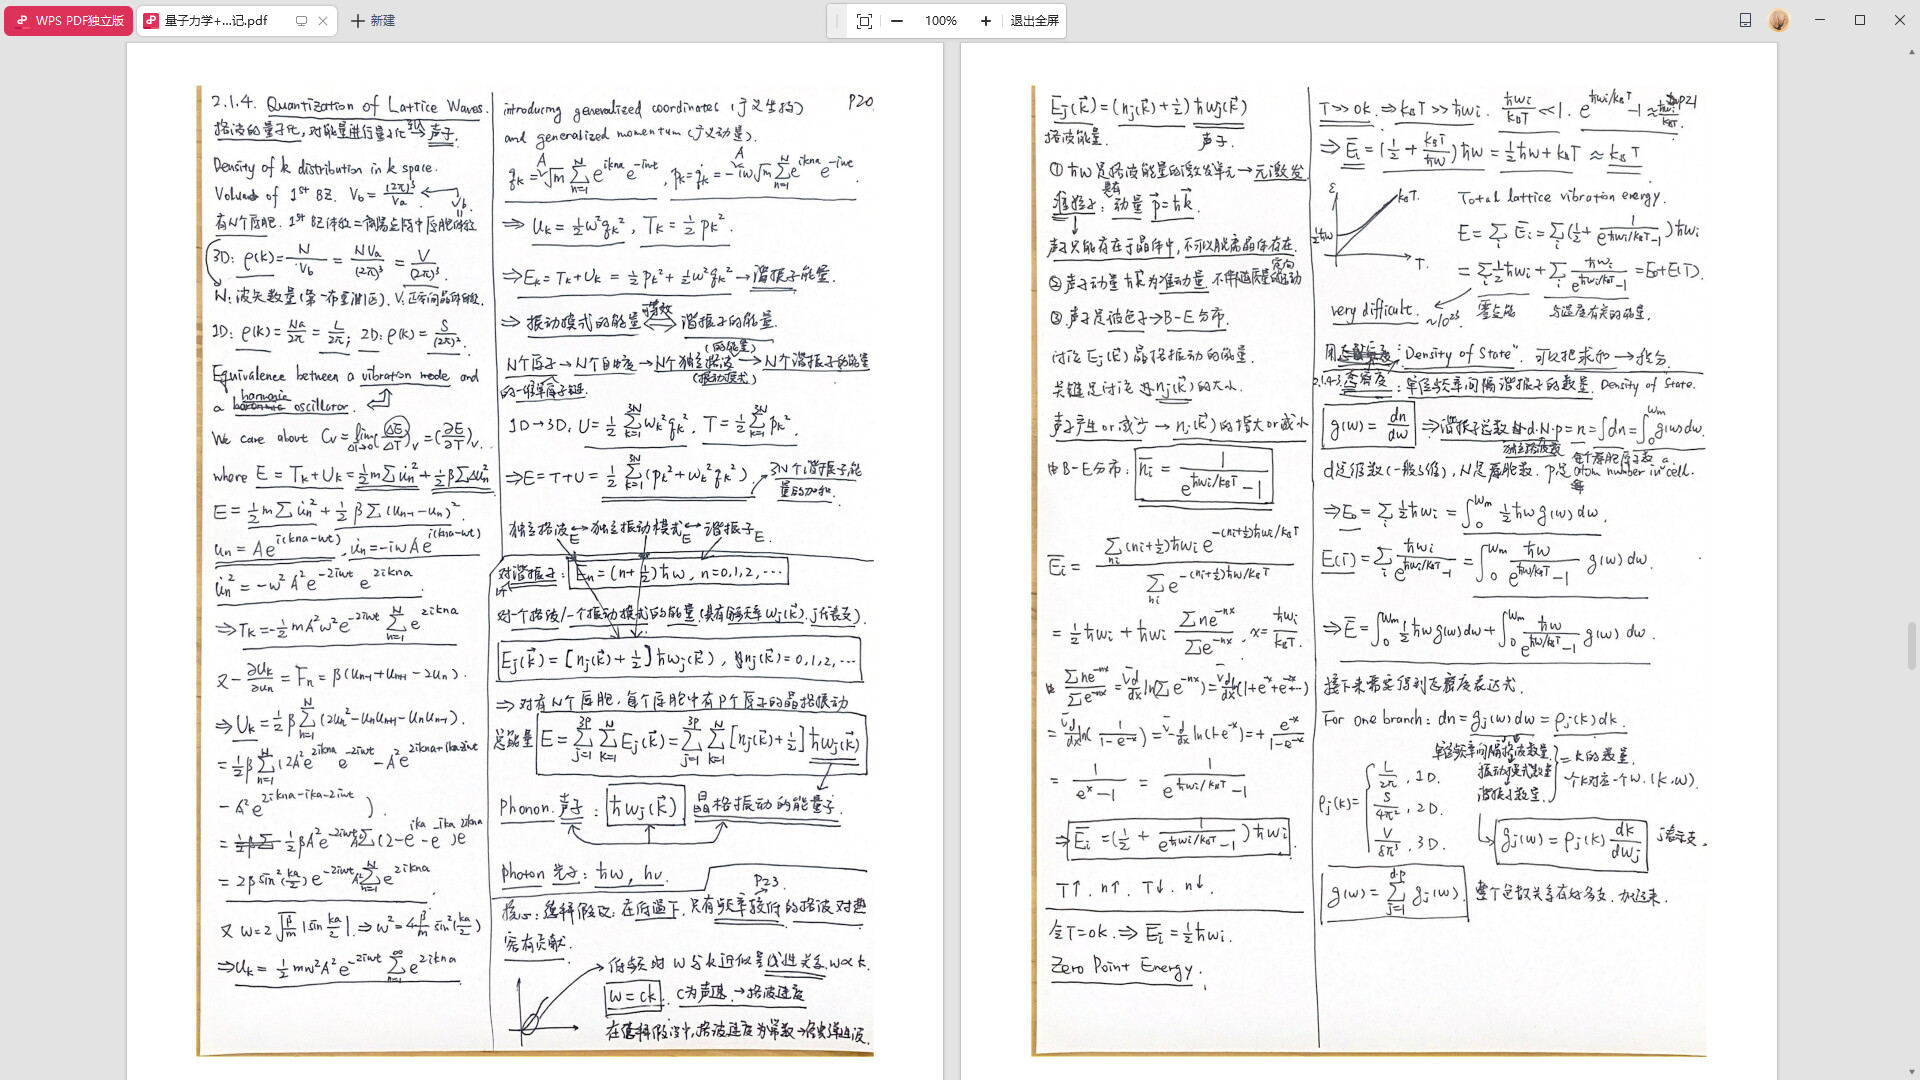 WPS PDF独立版
量子力学+...记.pdf
新建
100%
退出全屏
2.1.4. Quantization of Lattice Waves.
格波的量子化,对能量进行量子化 → 声子.
Density of k distribution in k space.
Volume of 1st BZ. Vb = (2π)³/Va
有N个原胞. 1st BZ体积=倒格点阵中原胞体积
3D: ρ(k) = N/Vb = NVa/(2π)³ = V/(2π)³.
N: 波矢数量(第一布里渊区). V: 正空间晶体体积.
1D: ρ(k) = Na/2π = L/2π; 2D: ρ(k) = S/(2π)².
Equivalence between a vibration mode and
a harmonic oscillator.
We care about Cv = lim ΔT→0 (ΔE/ΔT)v = (∂E/∂T)v.
where E = Tk + Uk = ½m∑u̇n² + ½β∑Δun²
E = ½m∑u̇n² + ½β∑(un-1 - un)².
un = Ae^i(kna-wt), u̇n = -iwAe^i(kna-wt)
u̇n² = -w²A²e^-2iwt e^2ikna
⇒ Tk = -½mA²w²e^-2iwt ∑(n=1→N) e^2ikna
又 -∂Uk/∂un = Fn = β(un-1 + un+1 - 2un).
⇒ Uk = ½β∑(n=1→N)(2un² - unun+1 - unun-1).
= ½β∑(n=1→N)(2A²e^2ikna e^-2iwt - A²e^2ikna+ika-2iwt
- A²e^2ikna-ika-2iwt)
= ½βA²e^-2iwt∑(2 - e^ika - e^-ika)e^2ikna
= 2βsin²(ka/2)e^-2iwt A²∑(n=1→N) e^2ikna
又 w = 2√(β/m)|sin ka/2|. ⇒ w² = 4β/m sin²(ka/2)
⇒ Uk = ½mw²A²e^-2iwt ∑(n=1→∞) e^2ikna
introducing generalized coordinates (广义坐标)
P20
and generalized momentum (广义动量).
qk = A√m ∑(n=1→N) e^ikna e^-iwt, pk = q̇k = -iw√m A∑(n=1→N) e^ikna e^-iwt.
⇒ Uk = ½w²qk², Tk = ½pk².
⇒ Ek = Tk + Uk = ½pk² + ½w²qk² → 谐振子能量.
⇒ 振动模式的能量 ⇔ 谐振子的能量.
可等效
(的能量)
N个原子 → N个自由度 → N个独立格波 → N个谐振子的能量
的一维单原子链. (振动模式)
1D → 3D, U = ½∑(k=1→3N) wk²qk², T = ½∑(k=1→3N) pk².
⇒ E = T + U = ½∑(k=1→3N)(pk² + wk²qk²). → 3N个谐振子能
量的加和.
独立格波 ↔ 独立振动模式 ↔ 谐振子
E E E.
对谐振子: En = (n+½)ħw, n = 0,1,2,⋯
对一个格波/一个振动模式的能量(具有频率wj(k⃗). j代表支).
Ej(k⃗) = [nj(k⃗) + ½]ħwj(k⃗), nj(k⃗) = 0,1,2,⋯
⇒ 对有N个原胞, 每个原胞中有P个原子的晶格振动
总能量 E = ∑(j=1→3p)∑(k=1→N) Ej(k⃗) = ∑(j=1→3p)∑(k=1→N)[nj(k⃗) + ½]ħwj(k⃗)
Phonon. 声子: ħwj(k⃗) 晶格振动的能量子.
Photon 光子: ħw, hν.
P23.
核心: 德拜假设: 在低温下, 只有频率较低的格波对热
容有贡献.
低频时 w 与k近似呈线性关系. w∝k.
w = ck. c为声速. → 格波速度
在德拜假设中, 格波速度为常数 → 像弹性波.
Ej(k⃗) = (nj(k⃗) + ½)ħwj(k⃗)
格波能量. 声子.
① ħw是格波能量的激发单元 → 元激发
具有
准粒子: 动量 p⃗ = ħk⃗.
声子只能存在于晶体中, 不可以脱离晶体存在.
② 声子动量 ħk⃗ 为准动量. 不伴随质量的定向运动
③ 声子是玻色子 → B-E分布.
讨论 Ej(k⃗) 晶格振动的能量.
关键是讨论 nj(k⃗) 的大小.
声子产生 or 减少 → nj(k⃗) 的增大 or 减小
由B-E分布: n̄i = 1/(e^ħwi/kBT - 1)
Ēi = ∑ni (ni+½)ħwi e^-(ni+½)ħwi/kBT / ∑ni e^-(ni+½)ħw/kBT
= ½ħwi + ħwi ∑ne^-nx/∑e^-nx, x = ħwi/kBT.
∑ne^-nx/∑e^-nx = -d/dx ln(∑e^-nx) = -d/dx(1+e^-x+e^-2x⋯)
= -d/dx ln(1/(1-e^-x)) = -d/dx ln(1-e^-x) = + e^-x/(1-e^-x)
= 1/(e^x - 1) = 1/(e^ħwi/kBT - 1)
⇒ Ēi = (½ + 1/(e^ħwi/kBT - 1))ħwi
T↑. n↑. T↓. n↓.
令T=0k. ⇒ Ēi = ½ħwi.
Zero Point Energy.
T>>0k. ⇒ kBT >> ħwi. ħwi/kBT << 1. e^ħwi/kBT - 1 ≈ ħwi/kBT.
P21
⇒ Ēi = (½ + kBT/ħw)ħw = ½ħw + kBT ≈ kBT
ε
kBT.
½ħw
T.
Total lattice vibration energy.
E = ∑i Ēi = ∑i(½ + 1/(e^ħwi/kBT - 1))ħwi
= ∑i ½ħwi + ∑i ħwi/(e^ħwi/kBT - 1) = E0 + E(T).
very difficult. ~10²³ 零点能 与温度有关的能量.
用 "Density of State". 可以把求和 → 积分
2.1.4-3. 态密度: 单位频率间隔谐振子的数量. Density of State.
g(w) = dn/dw ⇒ 谐振子总数 d·N·p = n = ∫dn = ∫(0→wm) g(w)dw.
独立格波数 每个原胞原子数
d是维数(一般3维), N是原胞数. p是 atom number in cell.
⇒ E0 = ∑i ½ħwi = ∫(0→wm) ½ħw g(w)dw.
E(T) = ∑i ħwi/(e^ħwi/kBT - 1) = ∫(0→wm) ħw/(e^ħw/kBT - 1) g(w)dw.
⇒ Ē = ∫(0→wm) ½ħw g(w)dw + ∫(0→wm) ħw/(e^ħw/kBT - 1) g(w)dw.
接下来需要得到态密度表达式.
For one branch: dn = gj(w)dw = ρj(k)dk.
单位频率间隔格波数量
振动模式数量 = k的数量.
谐振子数量. 一个k对应一个w. (k,w).
ρj(k) = { L/2π, 1D. S/4π², 2D. V/8π³, 3D.
gj(w) = ρj(k) dk/dwj j表示支.
g(w) = ∑(j=1→d·p) gj(w). 整个色散关系有好多支. 加起来.